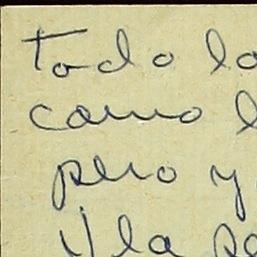 Todo lo
como l
pero y
y la pe